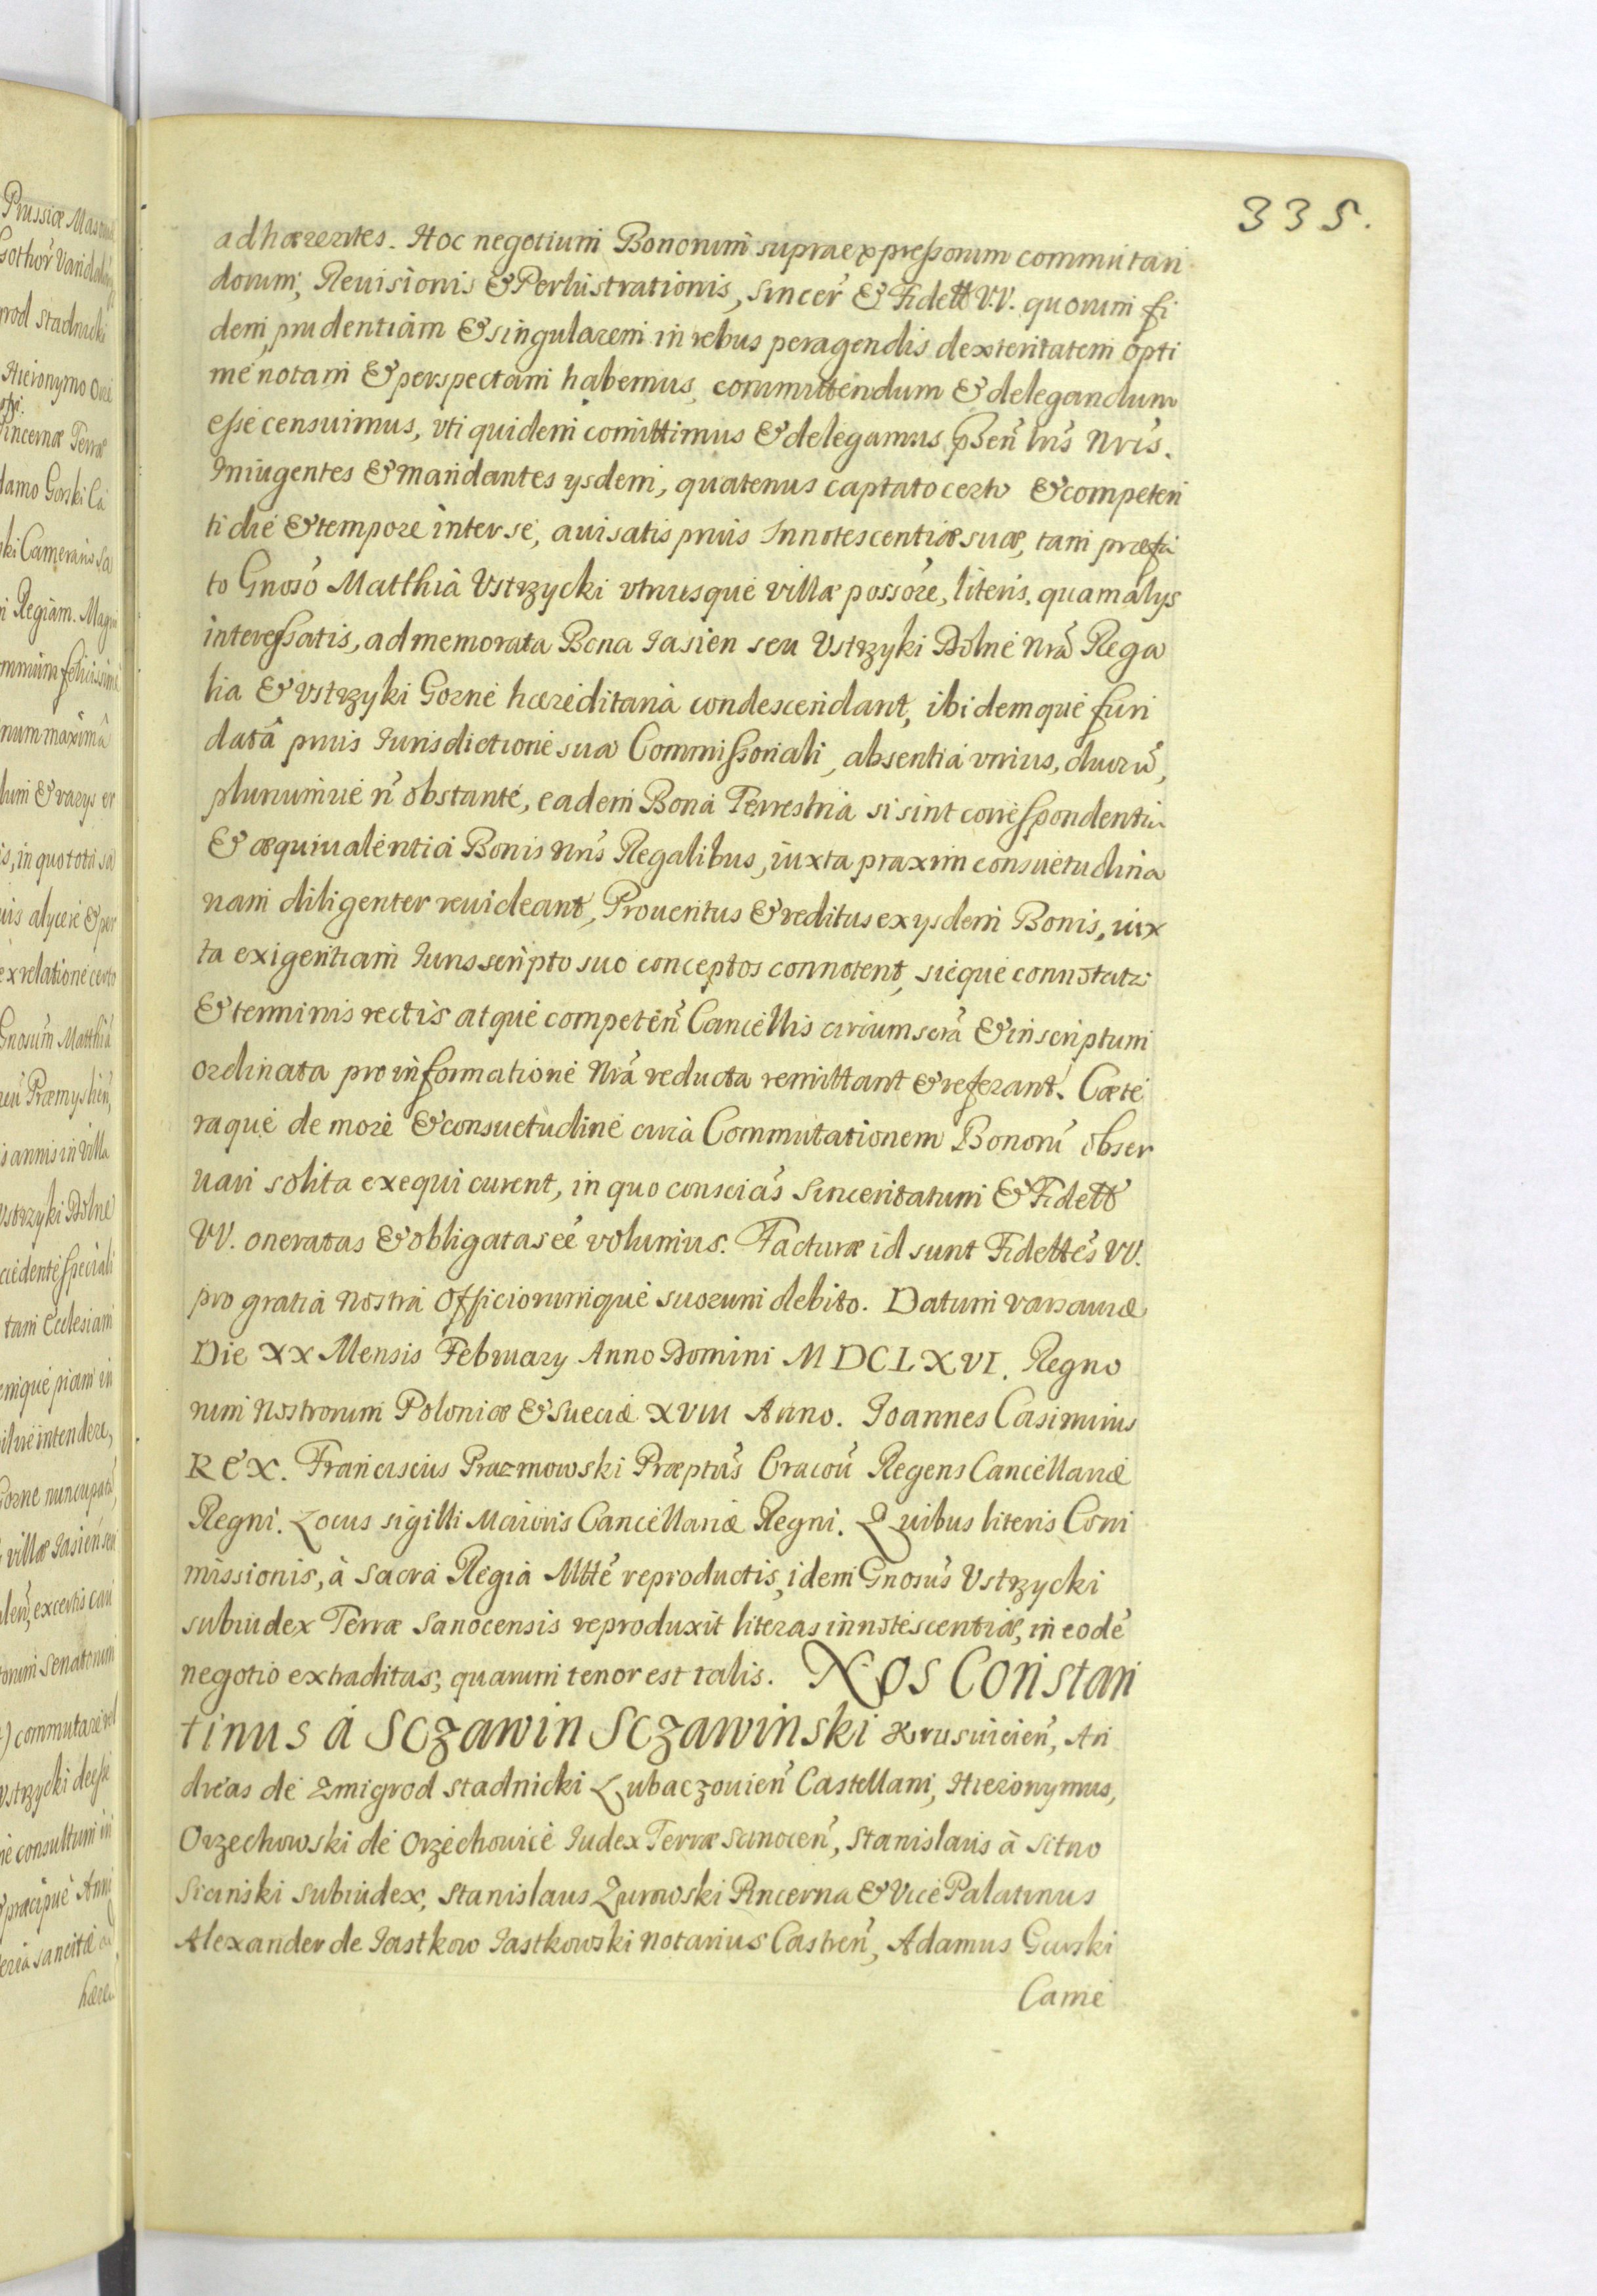 335.
adhærentes. Hoc negotium Bonorum supraexpressorum commutan
dorum, Reuisionis & Perlustrationis, Sincer̃ & Fidelt̃ V.V. quorum fi
dem, prudentiam & singularem in rebus peragendis dexteritatem opti
me notam & perspectam habemus, committendum & delegandum
esse censuimus, vti quidem comittimus & delegamus p̃sen̄ l̃ris Nr̃is.
Iniugentes & mandantes ysdem, quatenus captato certo & competen
ti die & tempore inter se, auisatis prius Innotescentiæ suæ, tam præfa
to Gnoso Matthia Vstrzycki vtriusque villæ possore, literis, quam alys
interessatis, ad memorata Bona Jasien seu Vstrzyki Dolne Nr̃a Rega
lia & Vstrzyki Gorne hæreditaria condescendant, ibidemque fun
datâ prius Iurisdictione sua Commissoriali, absentia vnius, duorũ,
plurimũe ñ obstante, eadem Bona Terrestria si sint correspondentia
& æquiualentia Bonis Nr̃is Regalibus, iuxta praxim consuetudina
riam diligenter reuideant, Prouentus & reditus ex ysdem Bonis, iux
ta exigentiam Iuris scripto suo conceptos connotent, sicque connotata
& terminis rectis atque competen̄ Cancellis circumscrã & in scriptum
ordinata pro informatione Nr̃a reducta remittant & referant. Cæte
raque de more & consuetudine circa Commutationem Bonorũ obser
uari solita exequi curent, in quo conscias̃ Sinceritatum & Fidelt̃
VV. oneratas & obligatas eẽ volumus. Facturæ id sunt Fideltẽs VV.
pro gratia nostra Officiorumque suorum debito. Datum Varsauiæ
Die XX Mensis February Anno Domini MDCLXVI. Regno
rum Nostrorum Poloniæ & Sueciæ XVIII Anno. Joannes Casimirus
REX. Franciscus Prazmowski Præptus̃ Cracoũ Regens Cancellariæ
Regni. Locus sigilli Maioris Cancellariæ Regni. Quibus literis Com
missionis, à Sacra Regia Mtt̃e reproductis, idem Gnosus̃ Vstrzycki
subiudex Terræ Sanocensis reproduxit literas innotescentiæ, in eodẽ
negotio extraditas, quarum tenor est talis. Nos Constan
tinus á Sczawin Sczawinski Krusuicien̄, An
dreas de Zmigrod Stadnicki Lubaczouien̄ Castellani, Hieronymus,
Orzechowski de Orzechowice Iudex Terræ Sanocen̄, Stanislaus à Sitno
Sicinski Subiudex, Stanislaus Zurowski Pincerna & Vice Palatinus
Alexander de Jastkow Jastkowski notarius Castren̄, Adamus Gurski
Came
Prussiæ
prod Stadnicki
Hieronymo
Pincernæ Terræ
damo Gorski Ca
ki Camerarius Sa
Regiam. Magni
felicissime
num maxima
lum & varys
, in quo tota
& per
ex relatione certo
Gnosum̃ Matthia
Præmyslien̄,
annis in villa
Vstrzyki Dolne
cedente speciali
tam Ecclesiam
emque piam in
intendere,
Gorne nuncupatã
villæ Jasien seu
excertis
orum Senatorum
commutare vel
Vstrzycki
consultum in
præcipue
sancitæ ad
hæren